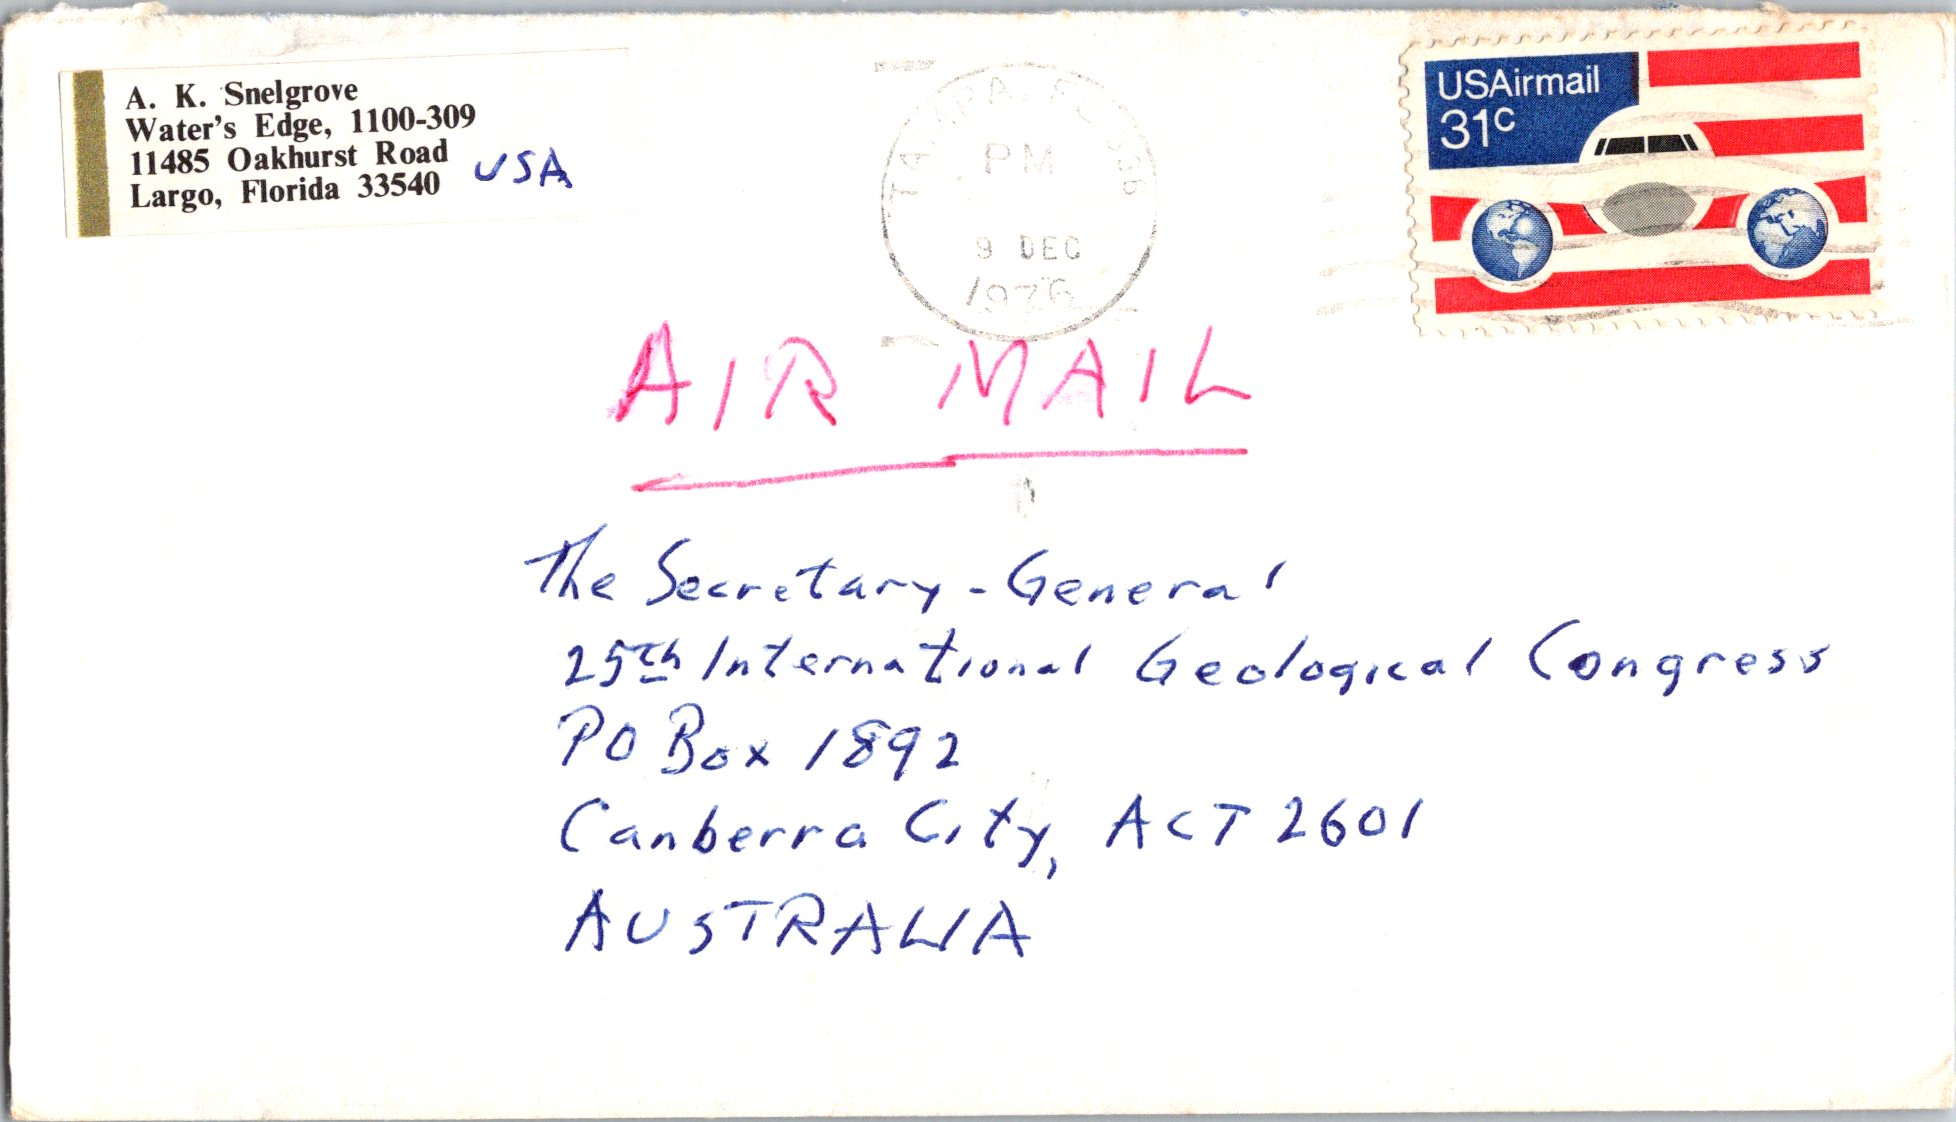 A. K. Snelgrove
Water's Edge, 1100-309
11485 Oakhurst Road
Largo, Florida 33540
USA
TAMPA, FL 336
PM
9 DEC
1976
USAirmail
31c
AIR MAIL
The Secretary-General
25th International Geological Congress
PO Box 1892
Canberra City, ACT 2601
AUSTRALIA